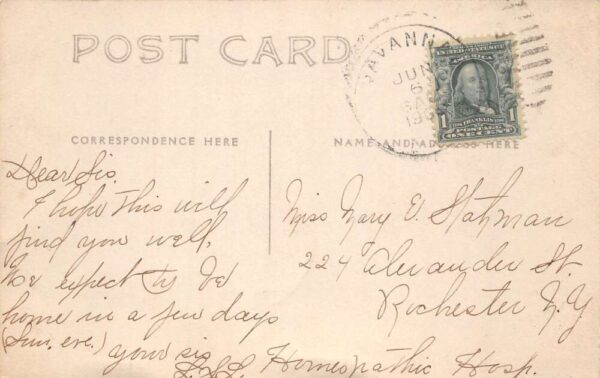 POST CARD
SAVANNA
JUN
6
UNITED STATES OF
AMERICA
FRANKLIN
1 POSTAGE 1
ONE CENT
CORRESPONDENCE HERE
Dear Sis.
I hope this will
find you well,
We expect to be
home in a few days
(Sun. eve.) your sis
NAME AND ADDRESS HERE
Miss Mary E. Stahman
224 Alexander St.
Rochester N.Y
Homeopathic Hosp.